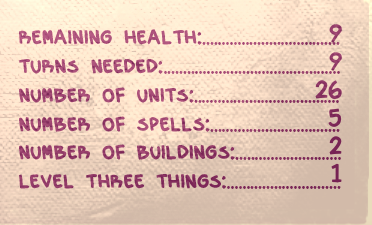 REMAINING HEALTH:..................9
TURNS NEEDED:..................9
NUMBER OF UNITS:..................26
NUMBER OF SPELLS:..................5
NUMBER OF BUILDINGS:..................2
LEVEL THREE THINGS:..................1